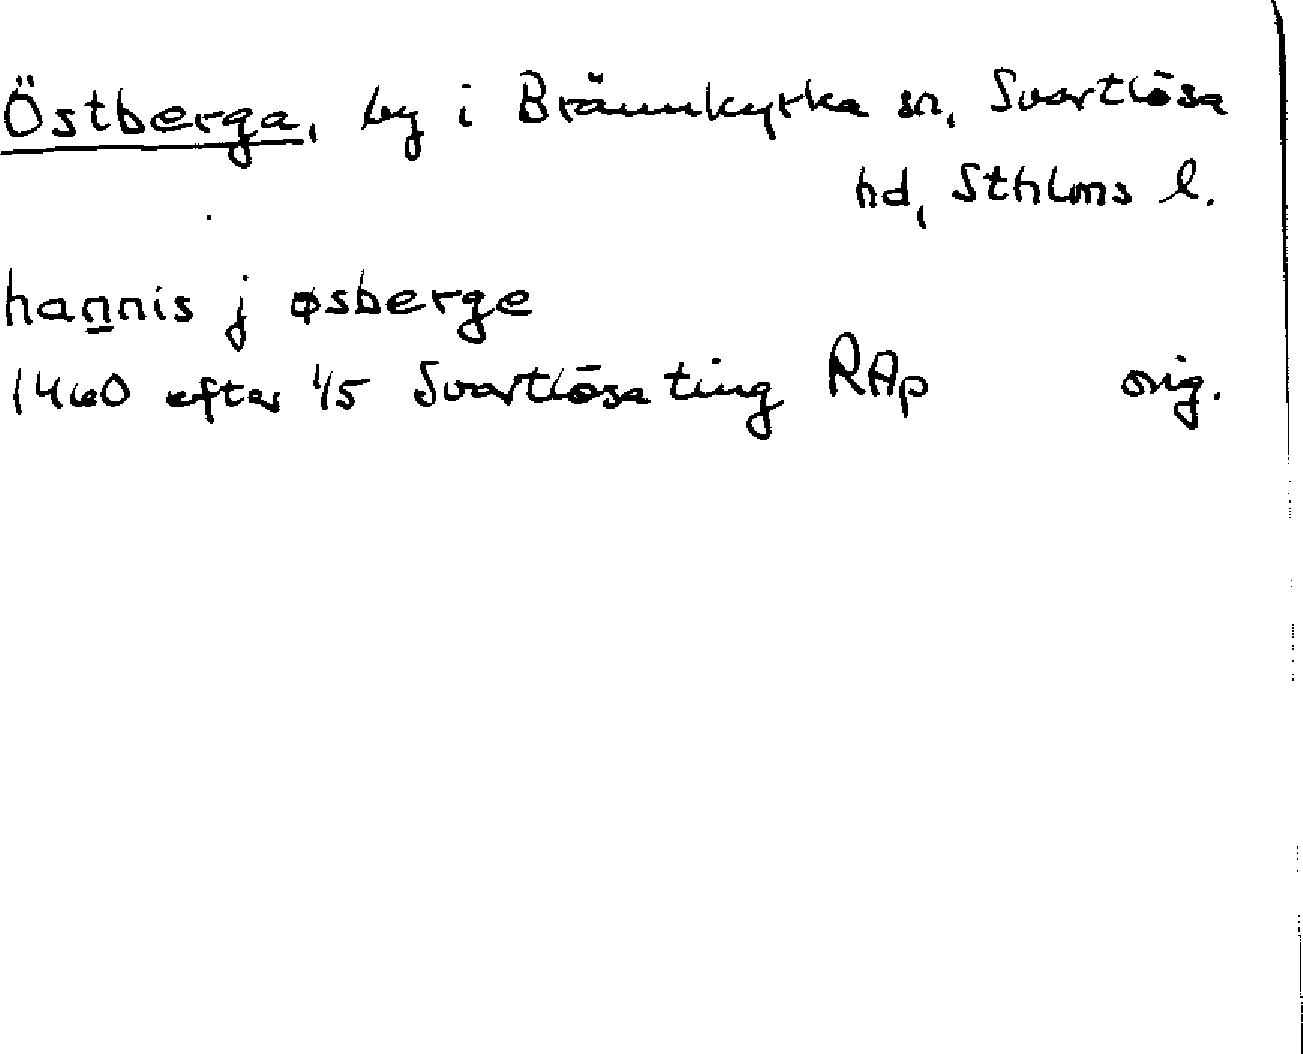 Östberga, by i Brännkyrka sn, Svartlösa
hd, Sthlms l.
hannis j øsberge
1460 efter 1/5 Svartlösa ting RAp orig.